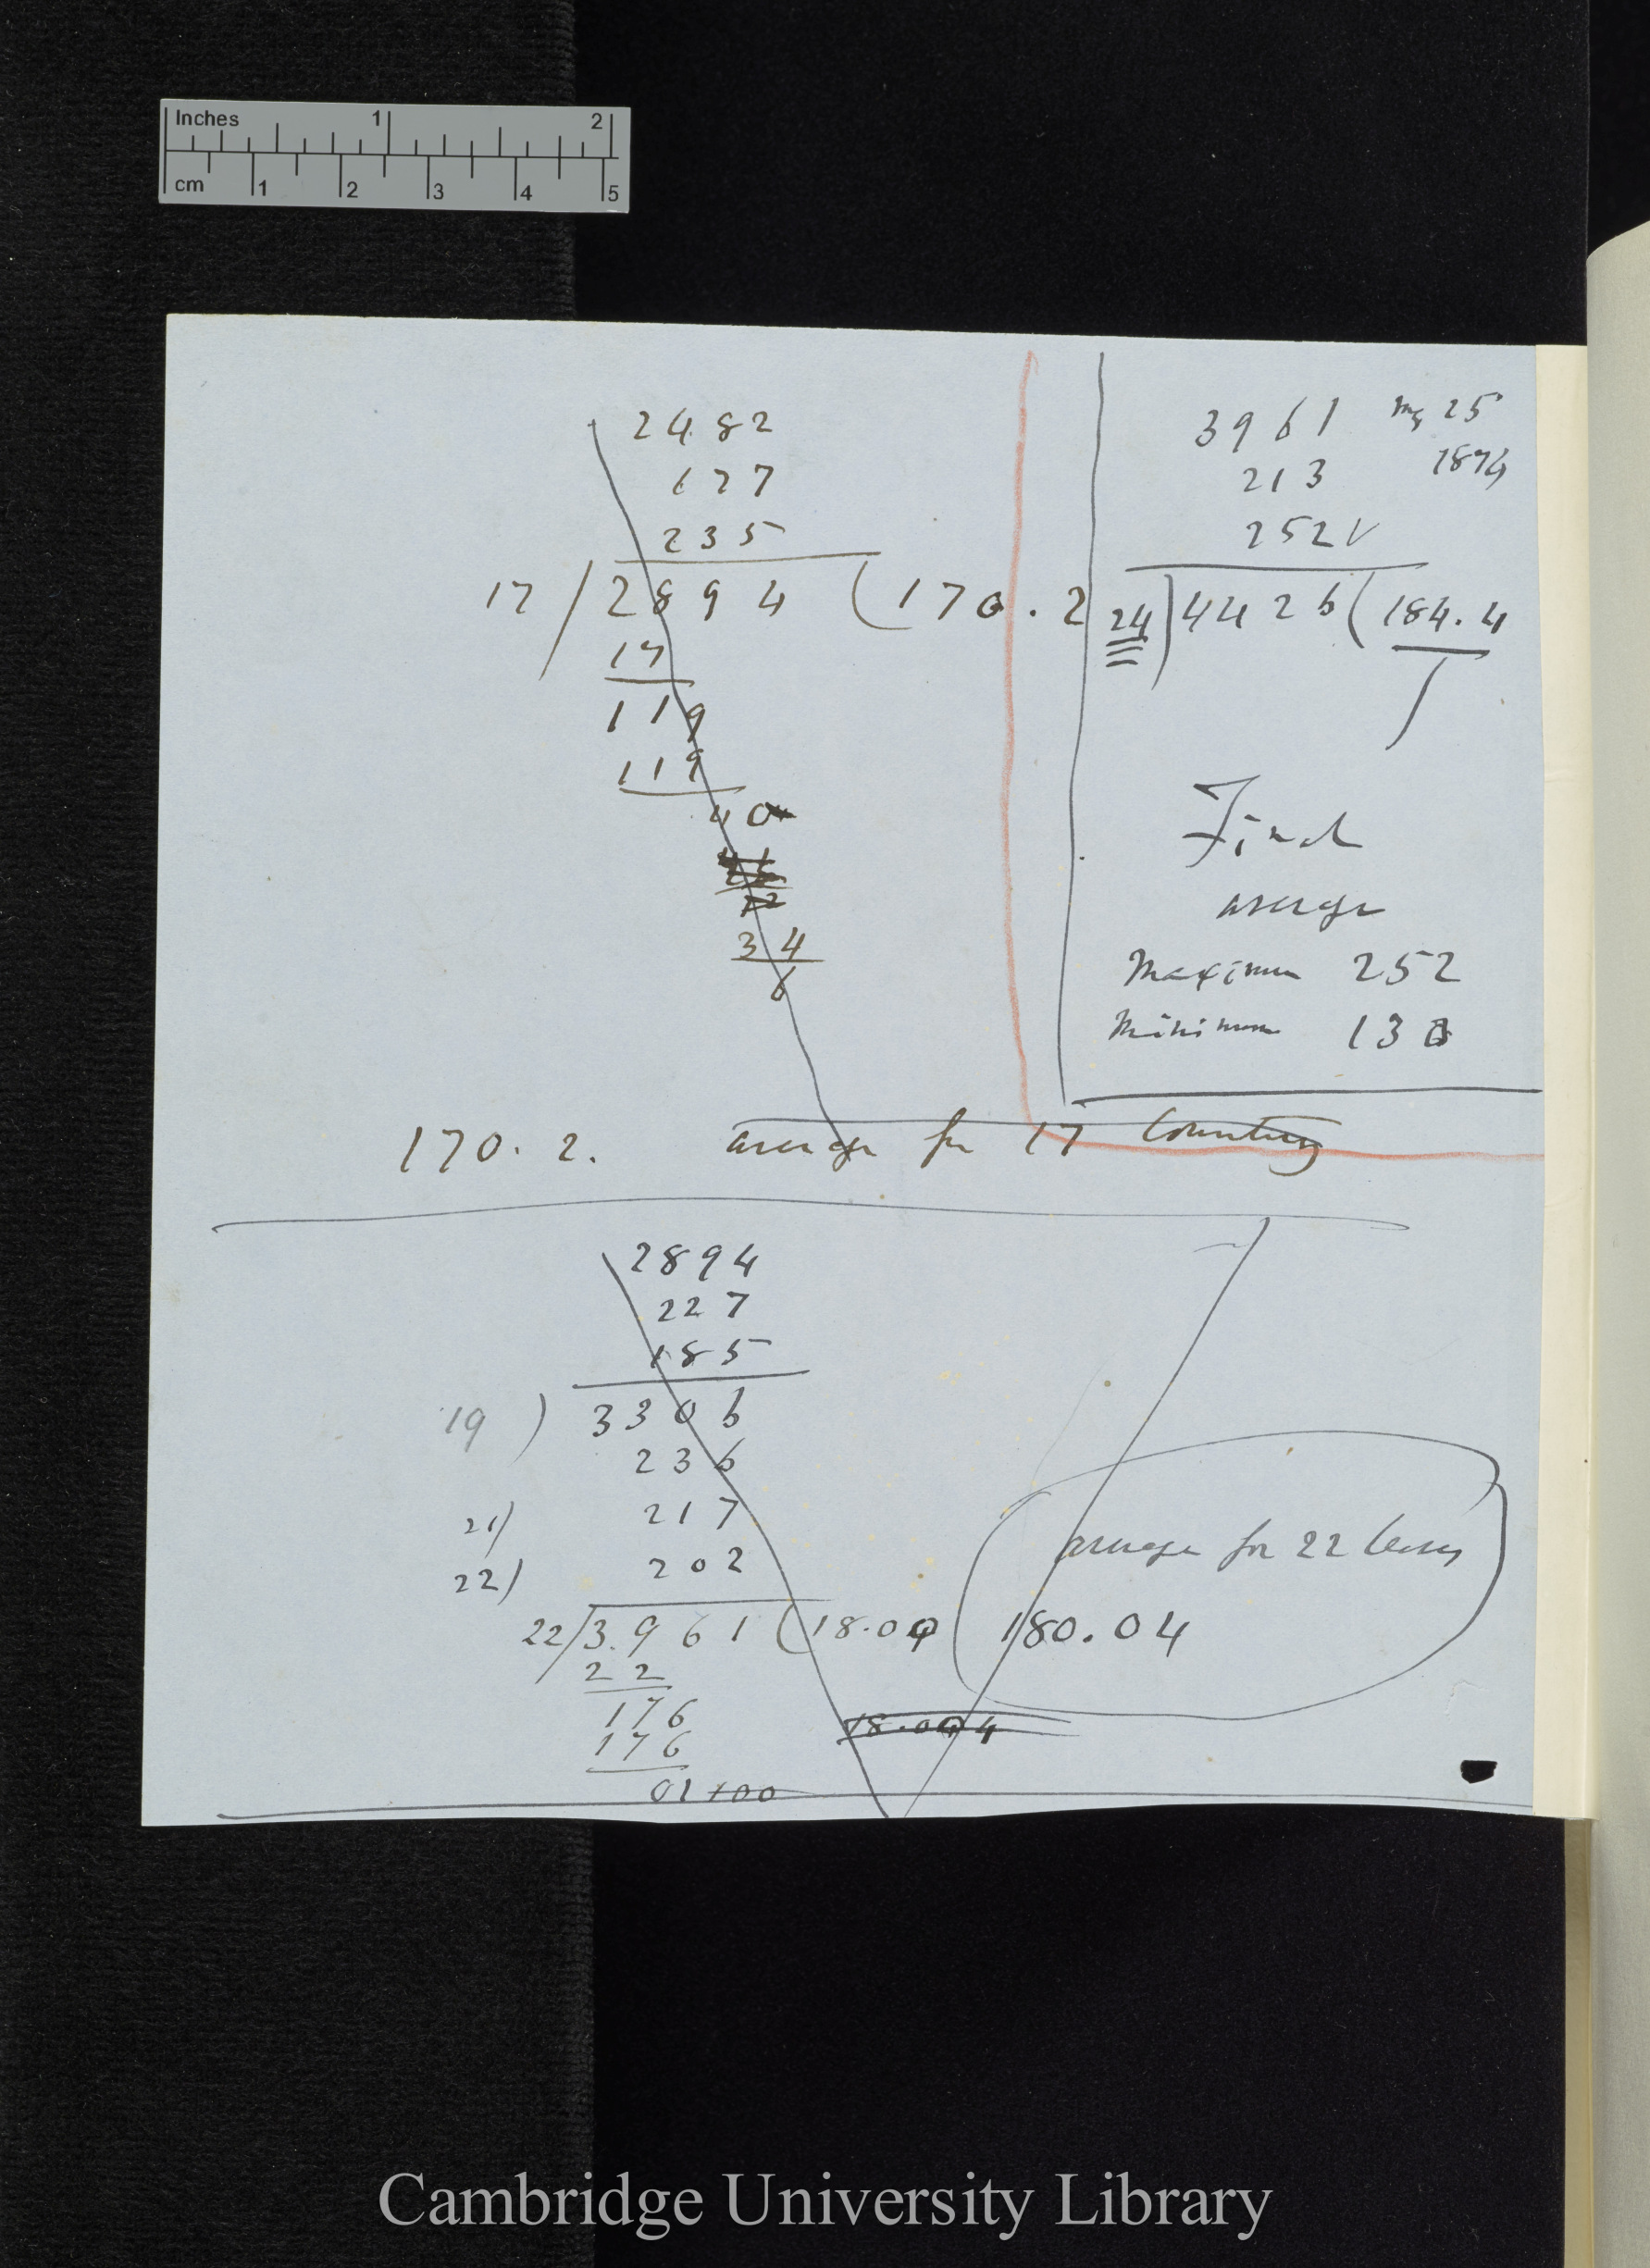 Inches 1 2
cm 1 2 3 4 5
2482
177
235
17 / 2894 ( 170.2
17
119
119
40
34
6
170.2. average for 17 Counting
3961 25
1874
213
252 V
24 ) 4426 ( 184.4
Final
average
Maximum 252
Minimum 130
2894
227
185
19 ) 3306
236
21) 217
22) 202
22/3.961 (18.04
22
176
176
01 100
18.004
average for 22 leaves
180.04
Cambridge University Library